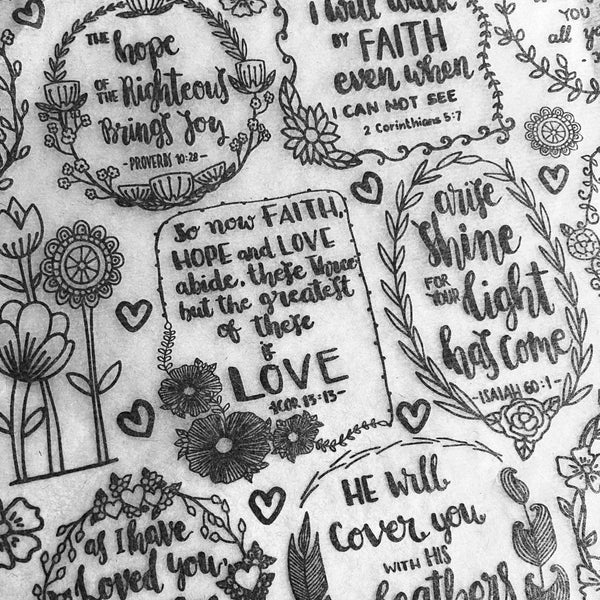 THE hope
OF THE Righteous
Brings Joy
- PROVERBS 10:28 -
I will walk
BY FAITH
even when
I CAN NOT SEE
2 Corinthians 5:7
YOU
all
So now FAITH,
HOPE and LOVE
abide, these three
but the greatest
of these
is
LOVE
1COR. 13:13-
arise
Shine
FOR YOUR light
has come
- ISAIAH 60:1 -
as I have
Loved you,
HE will
Cover you
WITH HIS
feathers